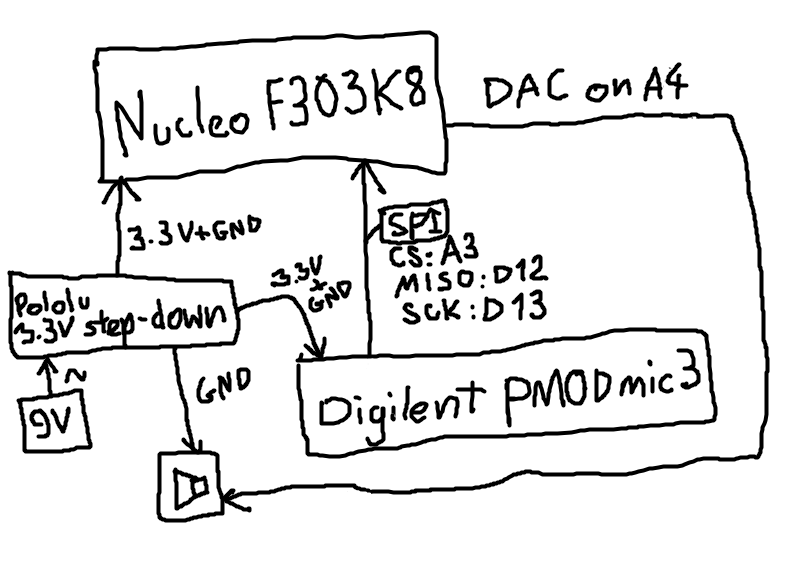 Nucleo F303K8
DAC on A4
3.3V+GND
SPI
CS: A3
MISO: D12
SCK: D13
3.3V
+
GND
Pololu
3.3V step-down
~
GND
9V
Digilent PMODmic3